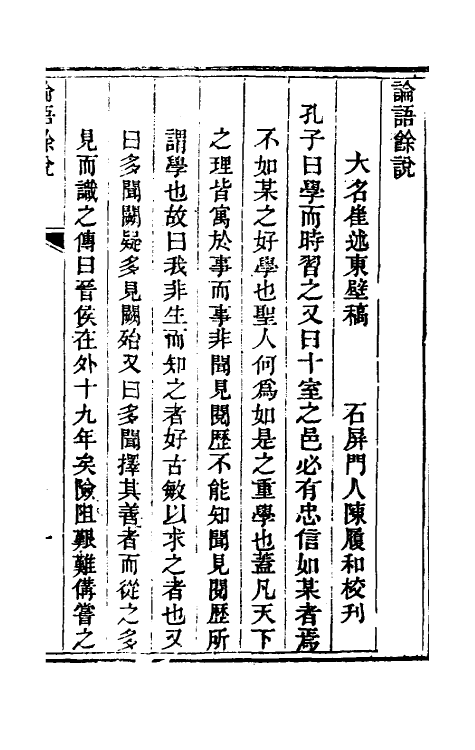 論語餘說
大名崔述東壁稿　石屏門人陳履和校刊
孔子曰學而時習之又曰十室之邑必有忠信如某者焉
不如某之好學也聖人何爲如是之重學也蓋凡天下
之理皆寓於事而事非聞見閱歷不能知聞見閱歷所
謂學也故曰我非生而知之者好古敏以求之者也又
曰多聞闕疑多見闕殆又曰多聞擇其善者而從之多
見而識之傳曰晉侯在外十九年矣險阻艱難備嘗之
論語餘說
一